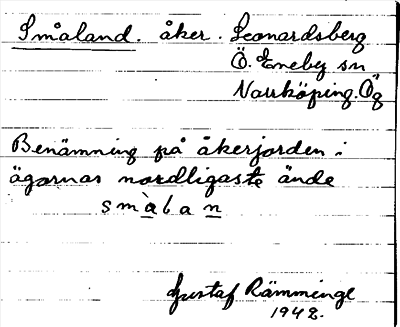 Småland. åker. Leonardsberg
Ö. Eneby sn
Norrköping. Ög
Benämning på åkerjorden i
ägornas nordligaste ände
smàlan
Gustaf Rämminge
1948.